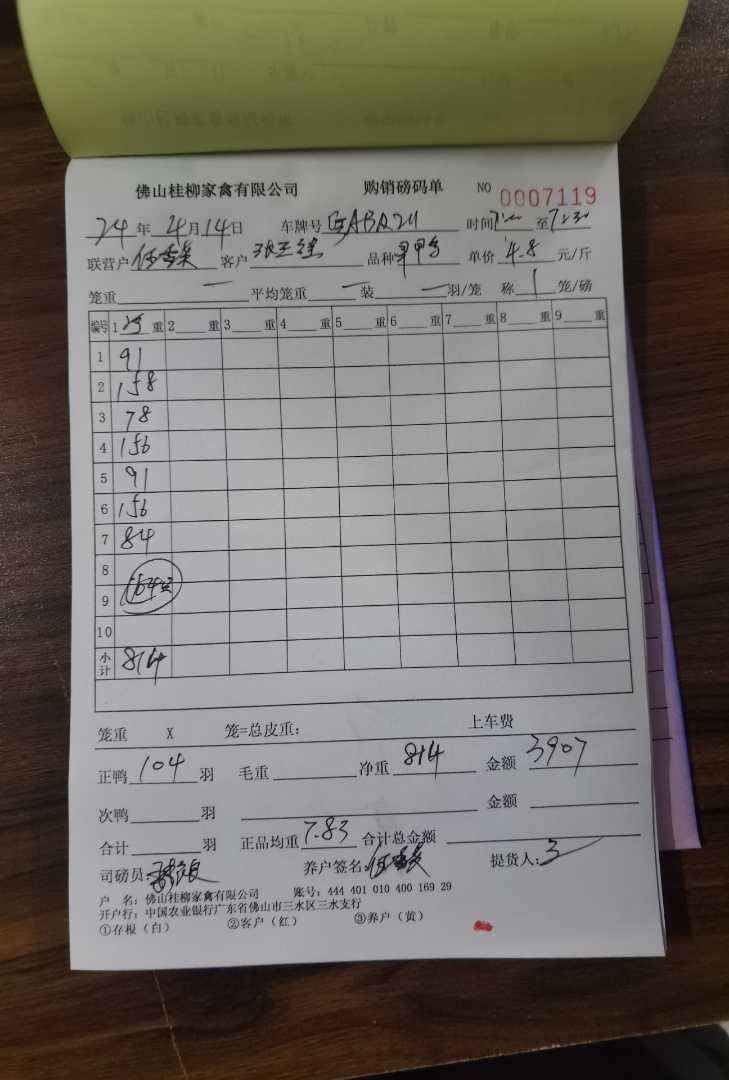 佛山桂柳家禽有限公司 购销磅码单 NO 0007119
24 年 4 月 14 日 车牌号 ABA211 时间 至 7:30
联营户 客户 品种 单价 4.8 元/斤
笼重 一 平均笼重 一 装 一 羽/笼 称 1 笼/磅
编号 1 重 2 重 3 重 4 重 5 重 6 重 7 重 8 重 9 重
1 91
2 158
3 78
4 156
5 91
6 156
7 84
8
9
10
小计 814
笼重 X 笼=总皮重: 上车费
正鸭 104 羽 毛重 净重 814 金额 3907
次鸭 羽 金额
合计 羽 正品均重 7.83 合计总金额
司磅员: 养户签名: 提货人:
户 名: 佛山桂柳家禽有限公司 账号: 444 401 010 400 169 29
开户行: 中国农业银行广东省佛山市三水区三水支行
①存根(白) ②客户(红) ③养户(黄)